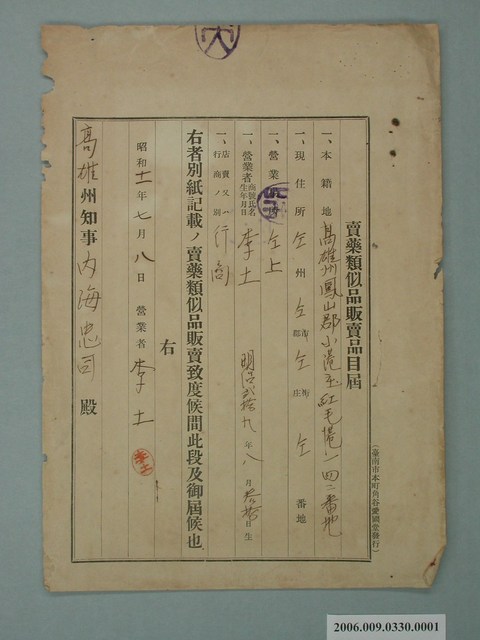 賣藥類似品販賣品目屆
一、本籍地 高雄州鳳山郡小港庄紅毛港一四二番地
一、現住所 仝州仝市郡仝街庄仝番地
一、營業 仝上
一、營業者商號氏名生年月日 李土 明治貳拾九年八月叁拾日生
一、店賣又ハ行商ノ別 行商
右者別紙記載ノ賣藥類似品販賣致度候間此段及御屆候也
右
昭和十一年七月八日 營業者 李土
李土
高雄州知事內海忠司殿
(臺南市本町角谷愛國堂發行)
2006.009.0330.0001